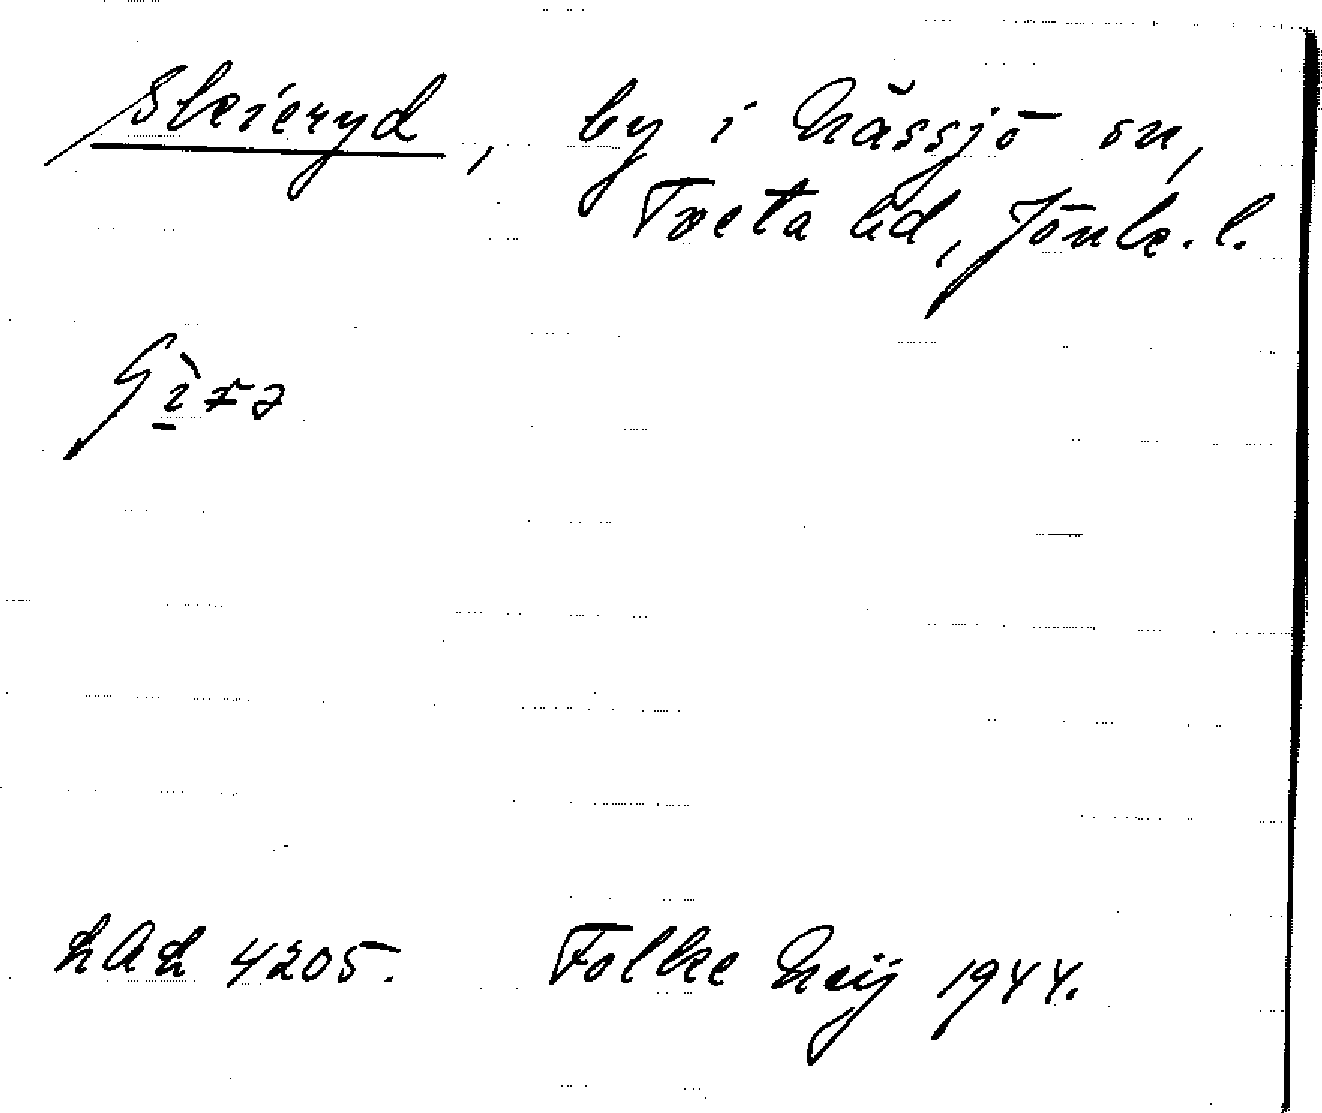 Skieryd, by i Nässjö sn,
Tveta hd, Jönk. l.
LAL 4205. Folke Neij 1944.